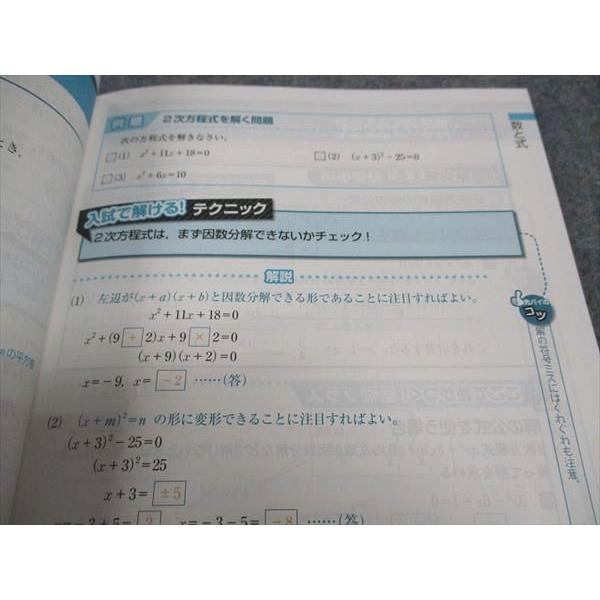 例題 2次方程式を解く問題
次の方程式を解きなさい。
□(1) x²+11x+18=0 □(2) (x+3)²-25=0
□(3) x²+6x=10
入試で解ける! テクニック
2次方程式は、まず因数分解できないかチェック!
解説
(1) 左辺が(x+a)(x+b)と因数分解できる形であることに注目すればよい。
x²+11x+18=0
x²+(9+2)x+9×2=0
(x+9)(x+2)=0
x=-9, x=-2 ……(答)
(2) (x+m)²=n の形に変形できることに注目すればよい。
(x+3)²-25=0
(x+3)²=25
x+3=±5
x=-3+5=2, x=-3-5=-8 ……(答)
数と式
先パイの
コツ
解の符号ミスにはくれぐれも注意。
の平方根